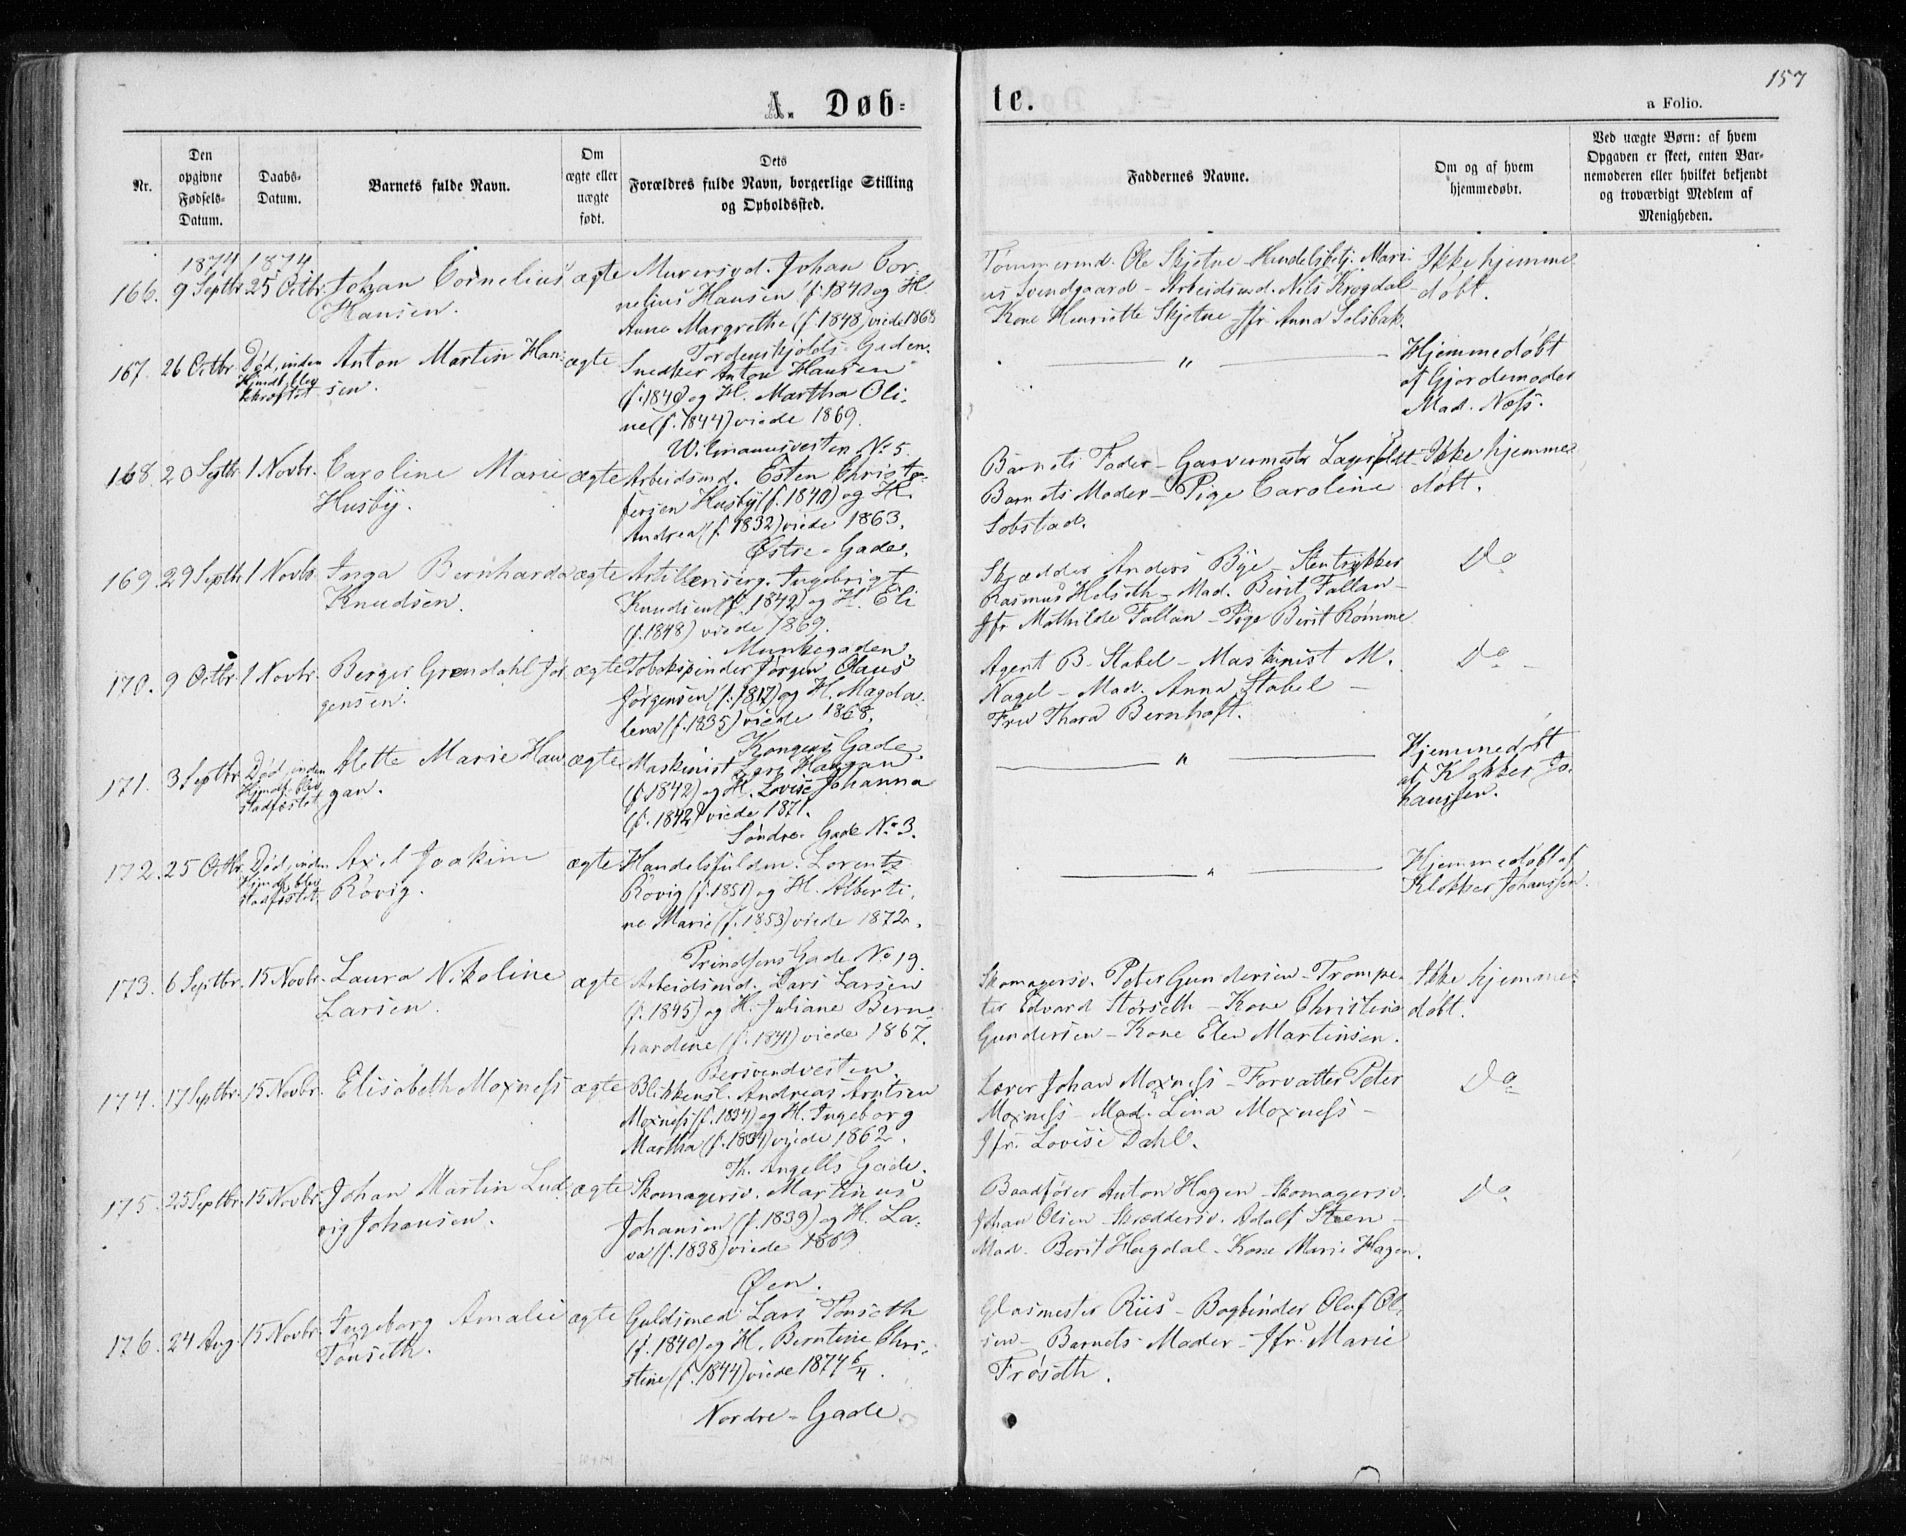 157
A. Døb-
te.
a Folio.
Nr.
Den opgivne Fødsels-Datum.
Daabs-Datum.
Barnets fulde Navn.
Om ægte eller uægte født.
Dets Forældres fulde Navn, borgerlige Stilling og Opholdssted.
Faddernes Navne.
Om og af hvem hjemmedøbt.
Ved uægte Børn: af hvem Opgaven er skeet, enten Barnemoderen eller hvilket bekjendt og troværdigt Medlem af Menigheden.
1874 1874
166. 9 Septbr. 25 Octbr. Johan Cornelius
Hansen.
ægte
Murersvd. Johan Cor-
nelius Hansen (f. 1840) og H.
Anna Margrethe (f. 1848) viede 1868
Tordenskjolds-Gaden.
Tømmermd. Ole Skjetne - Handelsbetj. Mari-
us Svendgaard - Arbeidsmd. Nils Krogdal -
Kone Henriette Skjetne - Jfr Anna Solsbak.
Ikke hjemme-
døbt.
167. 26 Octbr.
Død, inden
Hjmdb. blev
bekræftet
Anton Martin Han-
sen.
ægte
Snedker Anton Hansen
(f. 1840) og H. Martha Oli-
ne (f. 1844) viede 1869.
Wilmannsvesten No 5.
"
Hjemmedøbt
af Gjordemoder
Mad. Næss.
168. 20 Septbr. 1 Novbr. Caroline Marie
Husby.
ægte
Arbeidsmd. Esten Christo-
fersen Husby (f. 1840) og H.
Andrea (f. 1832) viede 1863.
Østre-Gade.
Barnets Fader - Garvermester
Barnets Moder - Pige Caroline
Sobstad.
Ikke hjemme
døbt.
169. 29 Septbr. 1 Novbr. Inga Bernharda
Knudsen.
ægte
Artilleriserg. Ingebrigt
Knudsen (f. 1842) og H. Eli
(f. 1848) viede 1869.
Munkegaden.
Skrædder Anders Bye - Stentrykker
Rasmus Helseth - Mad. Berit Fallan -
Jfr Mathilde Fallan - Pige Berit Rømme
Do
170. 9 Octbr. 1 Novbr. Berger Grøndahl Jør-
gensen.
ægte
Tobakspinder Jørgen Olaus
Jørgensen (f. 1817) og H. Magda-
lena (f. 1835) viede 1868.
Kongens Gade.
Agent B. Stabel - Maskinist M.
Nagel - Mad. Anna Stabel -
Fru Thora Bernhoft.
Do
171. 3 Septbr.
Død, inden
Hjmdb. blev
stadfæstet
Alette Marie Hau-
gan.
ægte
Maskinist Lars Haugan
(f. 1842) og H. Lovise Johanna
(f. 1842) viede 1871.
Søndre-Gade No 3.
"
Hjemmedøbt
af Klokker Jo-
hanssen.
172. 25 Octbr.
Død, inden
Hjmdb. blev
stadfæstet
Axel Joakim
Røvig.
ægte
Handelsfuldm. Lorentz
Røvig (f. 1851) og H. Alberti-
ne Marie (f. 1853) viede 1872.
Prindsens Gade No 19.
"
Hjemmedøbt af
Klokker Johanssen.
173. 6 Septbr. 15 Novbr. Laura Nikoline
Larsen.
ægte
Arbeidsmd. Lars Larsen
(f. 1845) og H. Juliane Bern-
hardine (f. 1841) viede 1867.
Bersvendvesten.
Skomagersv. Peter Gundersen - Trompe-
ter Edvard Størseth - Kone Christine
Gundersen - Kone Elen Martinsen.
Ikke hjemme-
døbt.
174. 17 Septbr. 15 Novbr. Elisabeth Moxness
ægte
Blikkensl. Andreas Arntsen
Moxness (f. 1834) og H. Ingeborg
Martha (f. 1834) viede 1862.
Th. Angells Gade.
Lærer Johan Moxness - Forvalter Peter
Moxness - Mad. Lina Moxness -
Jfr. Lovise Dahl.
Do
175. 25 Septbr. 15 Novbr. Johan Martin Lud-
vig Johansen.
ægte
Skomagersv. Martinus
Johansen (f. 1839) og H. La-
va (f. 1838) viede 1869
Øen.
Baadfører Anton Hagen - Skomagersv.
Johan Olsen - Skræddersv. Adolf Steen -
Mad. Berit Hagdal - Kone Marie Hagen.
Do
176. 24 Aug. 15 Novbr. Ingeborg Amalie
Tønseth.
ægte
Guldsmed Lars Tønseth
(f. 1840) og H. Berntine Chri-
stine (f. 1844) viede 1874 6/4.
Nordre-Gade
Glasmester Riis - Bogbinder Oluf Ol-
sen - Barnets Moder - Jfr Marie
Frøseth.